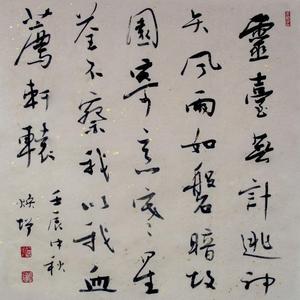 靈臺無計逃神
矢風雨如磐暗故
園寄意寒星
荃不察我以我血
薦軒轅
壬辰中秋